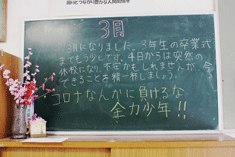 3月
3月になりました。3年生の卒業式
までもう少しです。4日からは突然の
休校になり、不安かもしれませんが、今
できることを精一杯しましょう。
コロナなんかに負けるな
全力少年!!